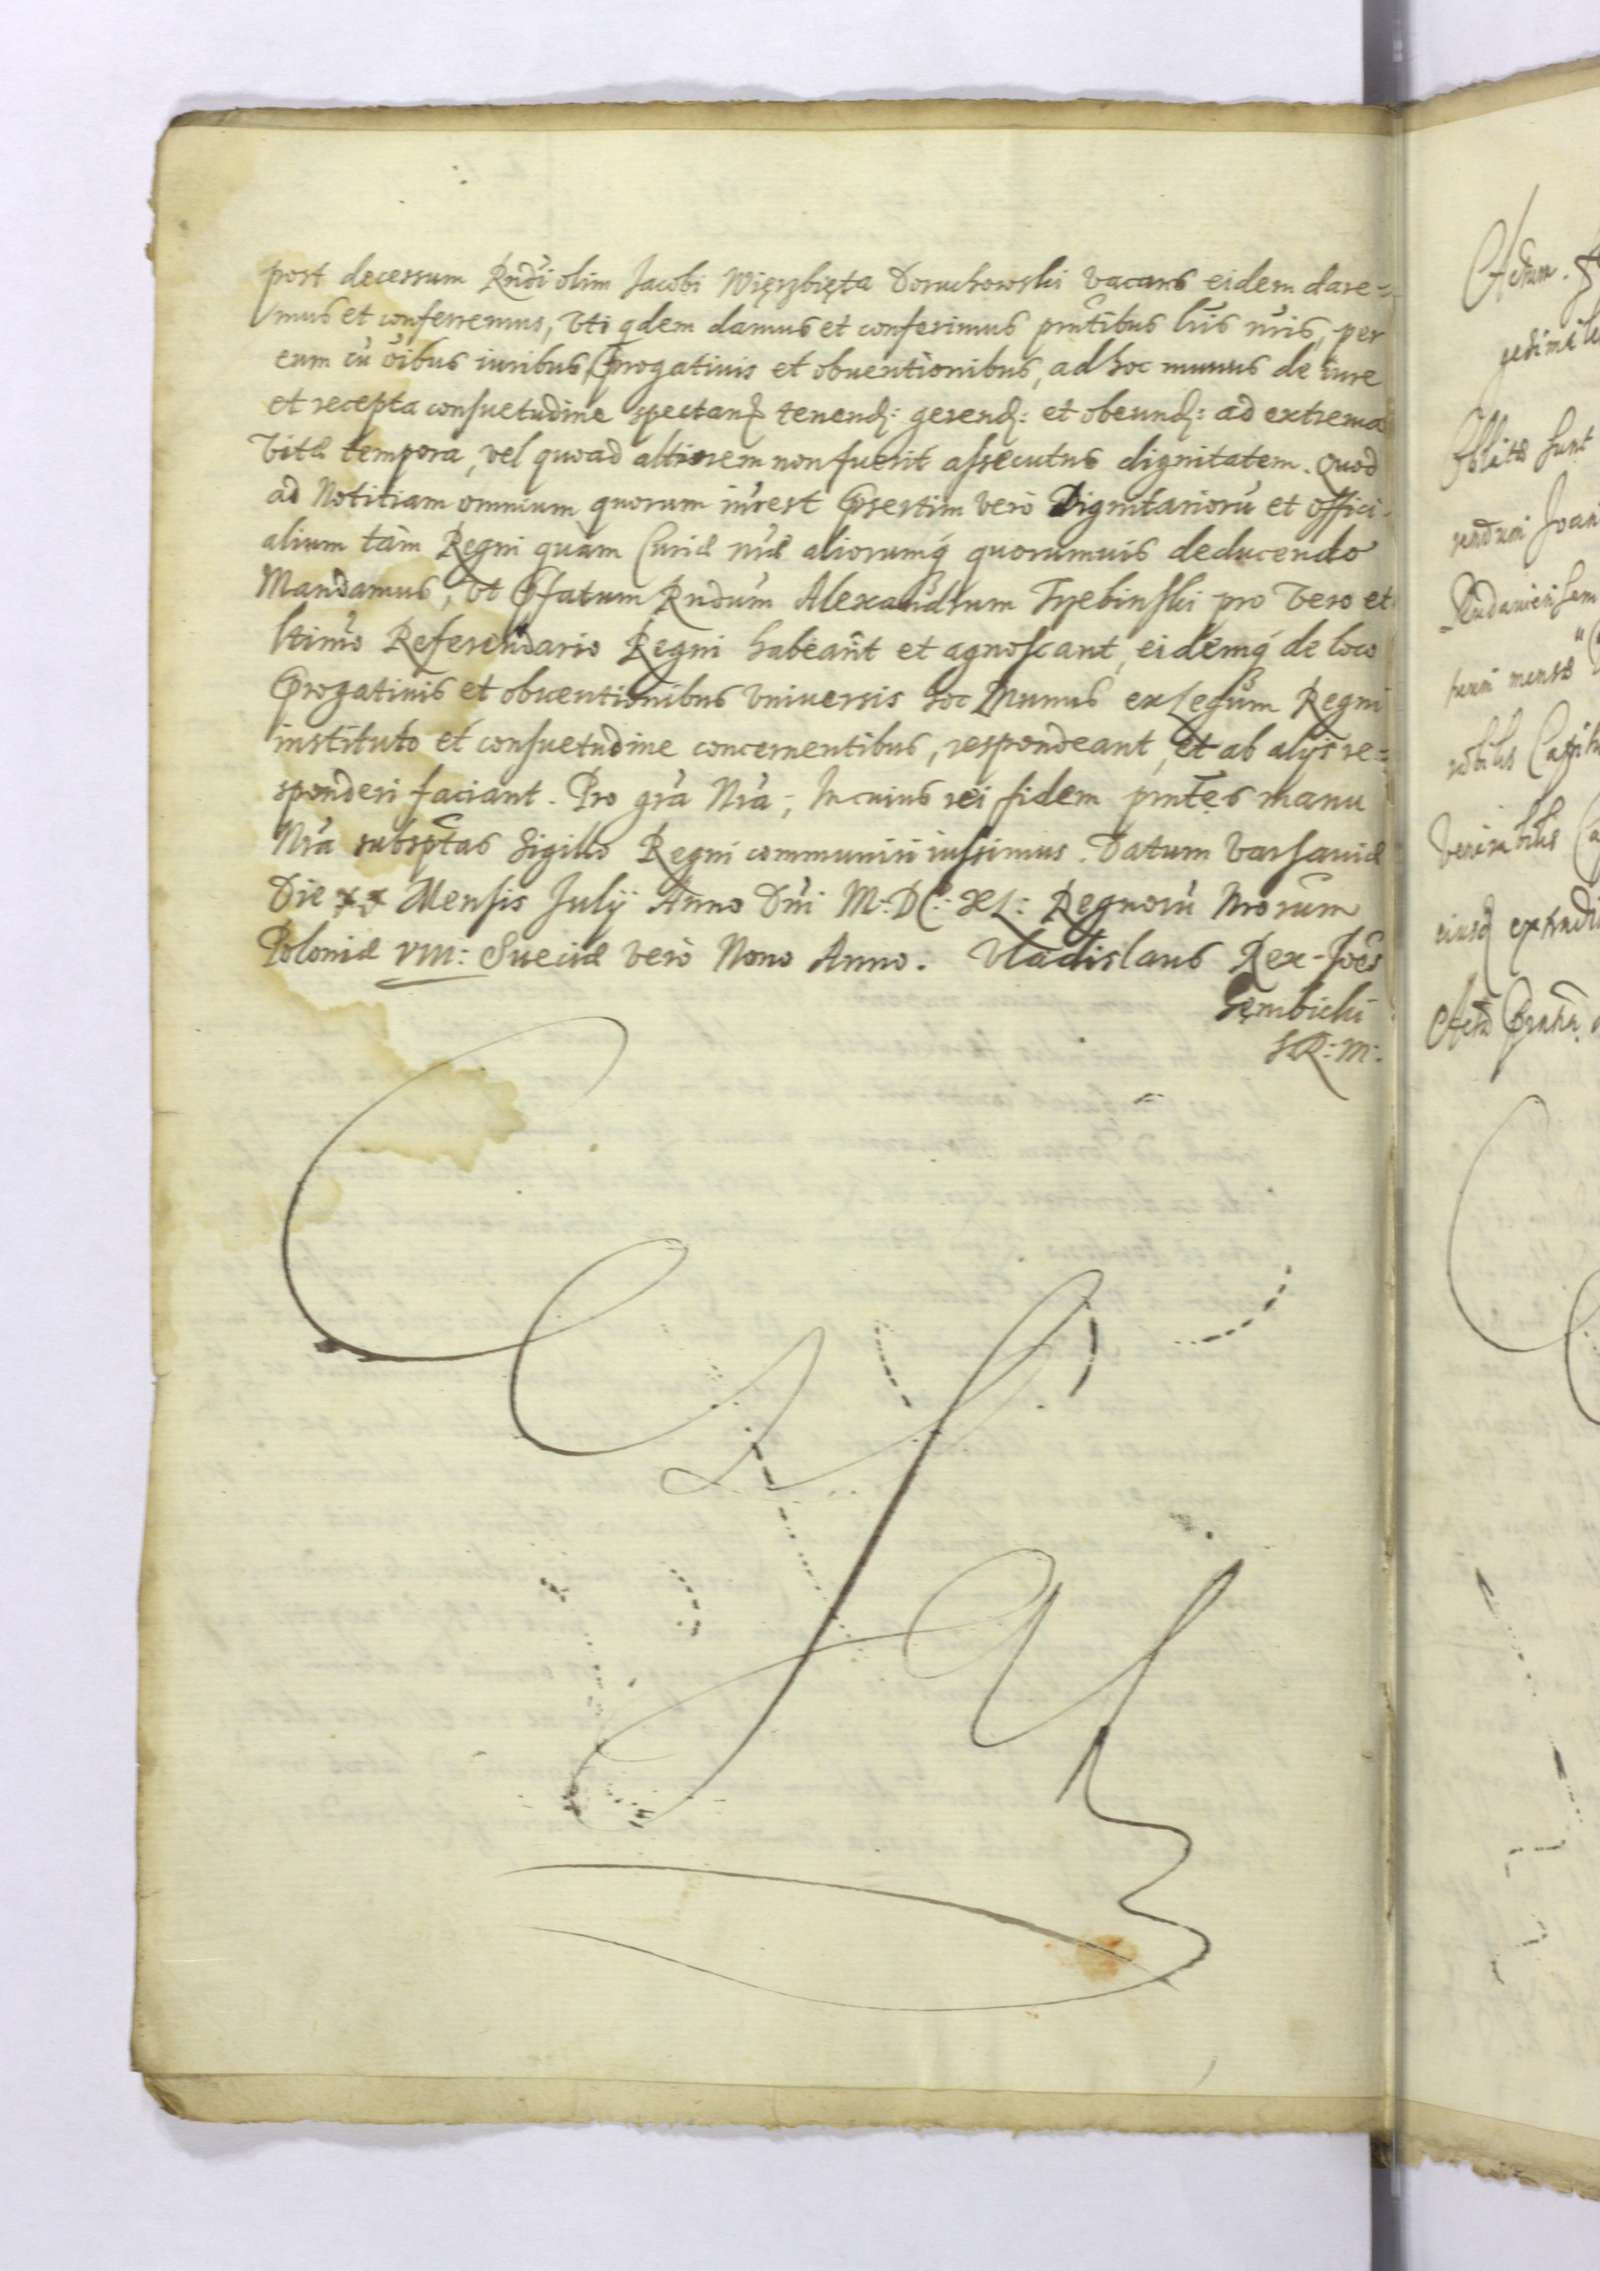 post decessum Rndi olim Jacobi Więrzbięta Doruchowski vacans eidem dare=
mus et conferremus, Vti qdem damus et conferimus pntibus lris nris, per
eum cu oibus iuribus, Prærogatiuis et obuentionibus, ad hoc munus de iure
et recepta consuetudine spectan: tenend: gerend: et obeund: ad extrema
Vitæ tempora, vel quoad altiorem non fuerit assecutus dignitatem. Quod
ad Notitiam omnium quorum intrest Præsertim vero Dignitarioru et offici-
alium tàm Regni quàm Curiæ nræ aliorumq quorumuis deducendo
Mandamus, Vt Præfatum Rndum Alexandrum Trzebinski pro Vero et
ltimo Referendario Regni habeant et agnoscant, eidemq de loco
Prærogatiuis et obuentionibus Vniuersis hoc Munus ex Legum Regni
instituto et consuetudine concernentibus, respondeant, et ab alijs re=
sponderi faciant. Pro gra Nra; In cuius rei fidem pntes manu
Nra subsptas Sigillo Regni communiri iussimus. Datum Varsauiæ
Die xx Mensis Julij Anno Dni M: DC: XL: Regnoru Nrorum
Poloniæ VIII: Sueciæ verò Nono Anno. Vladislaus Rex - Joes
Gęmbicki
S R: M:
Actum.
Oblatæ sunt
Joan
mense
nobilis
Venerabilis
eiusq
Acta